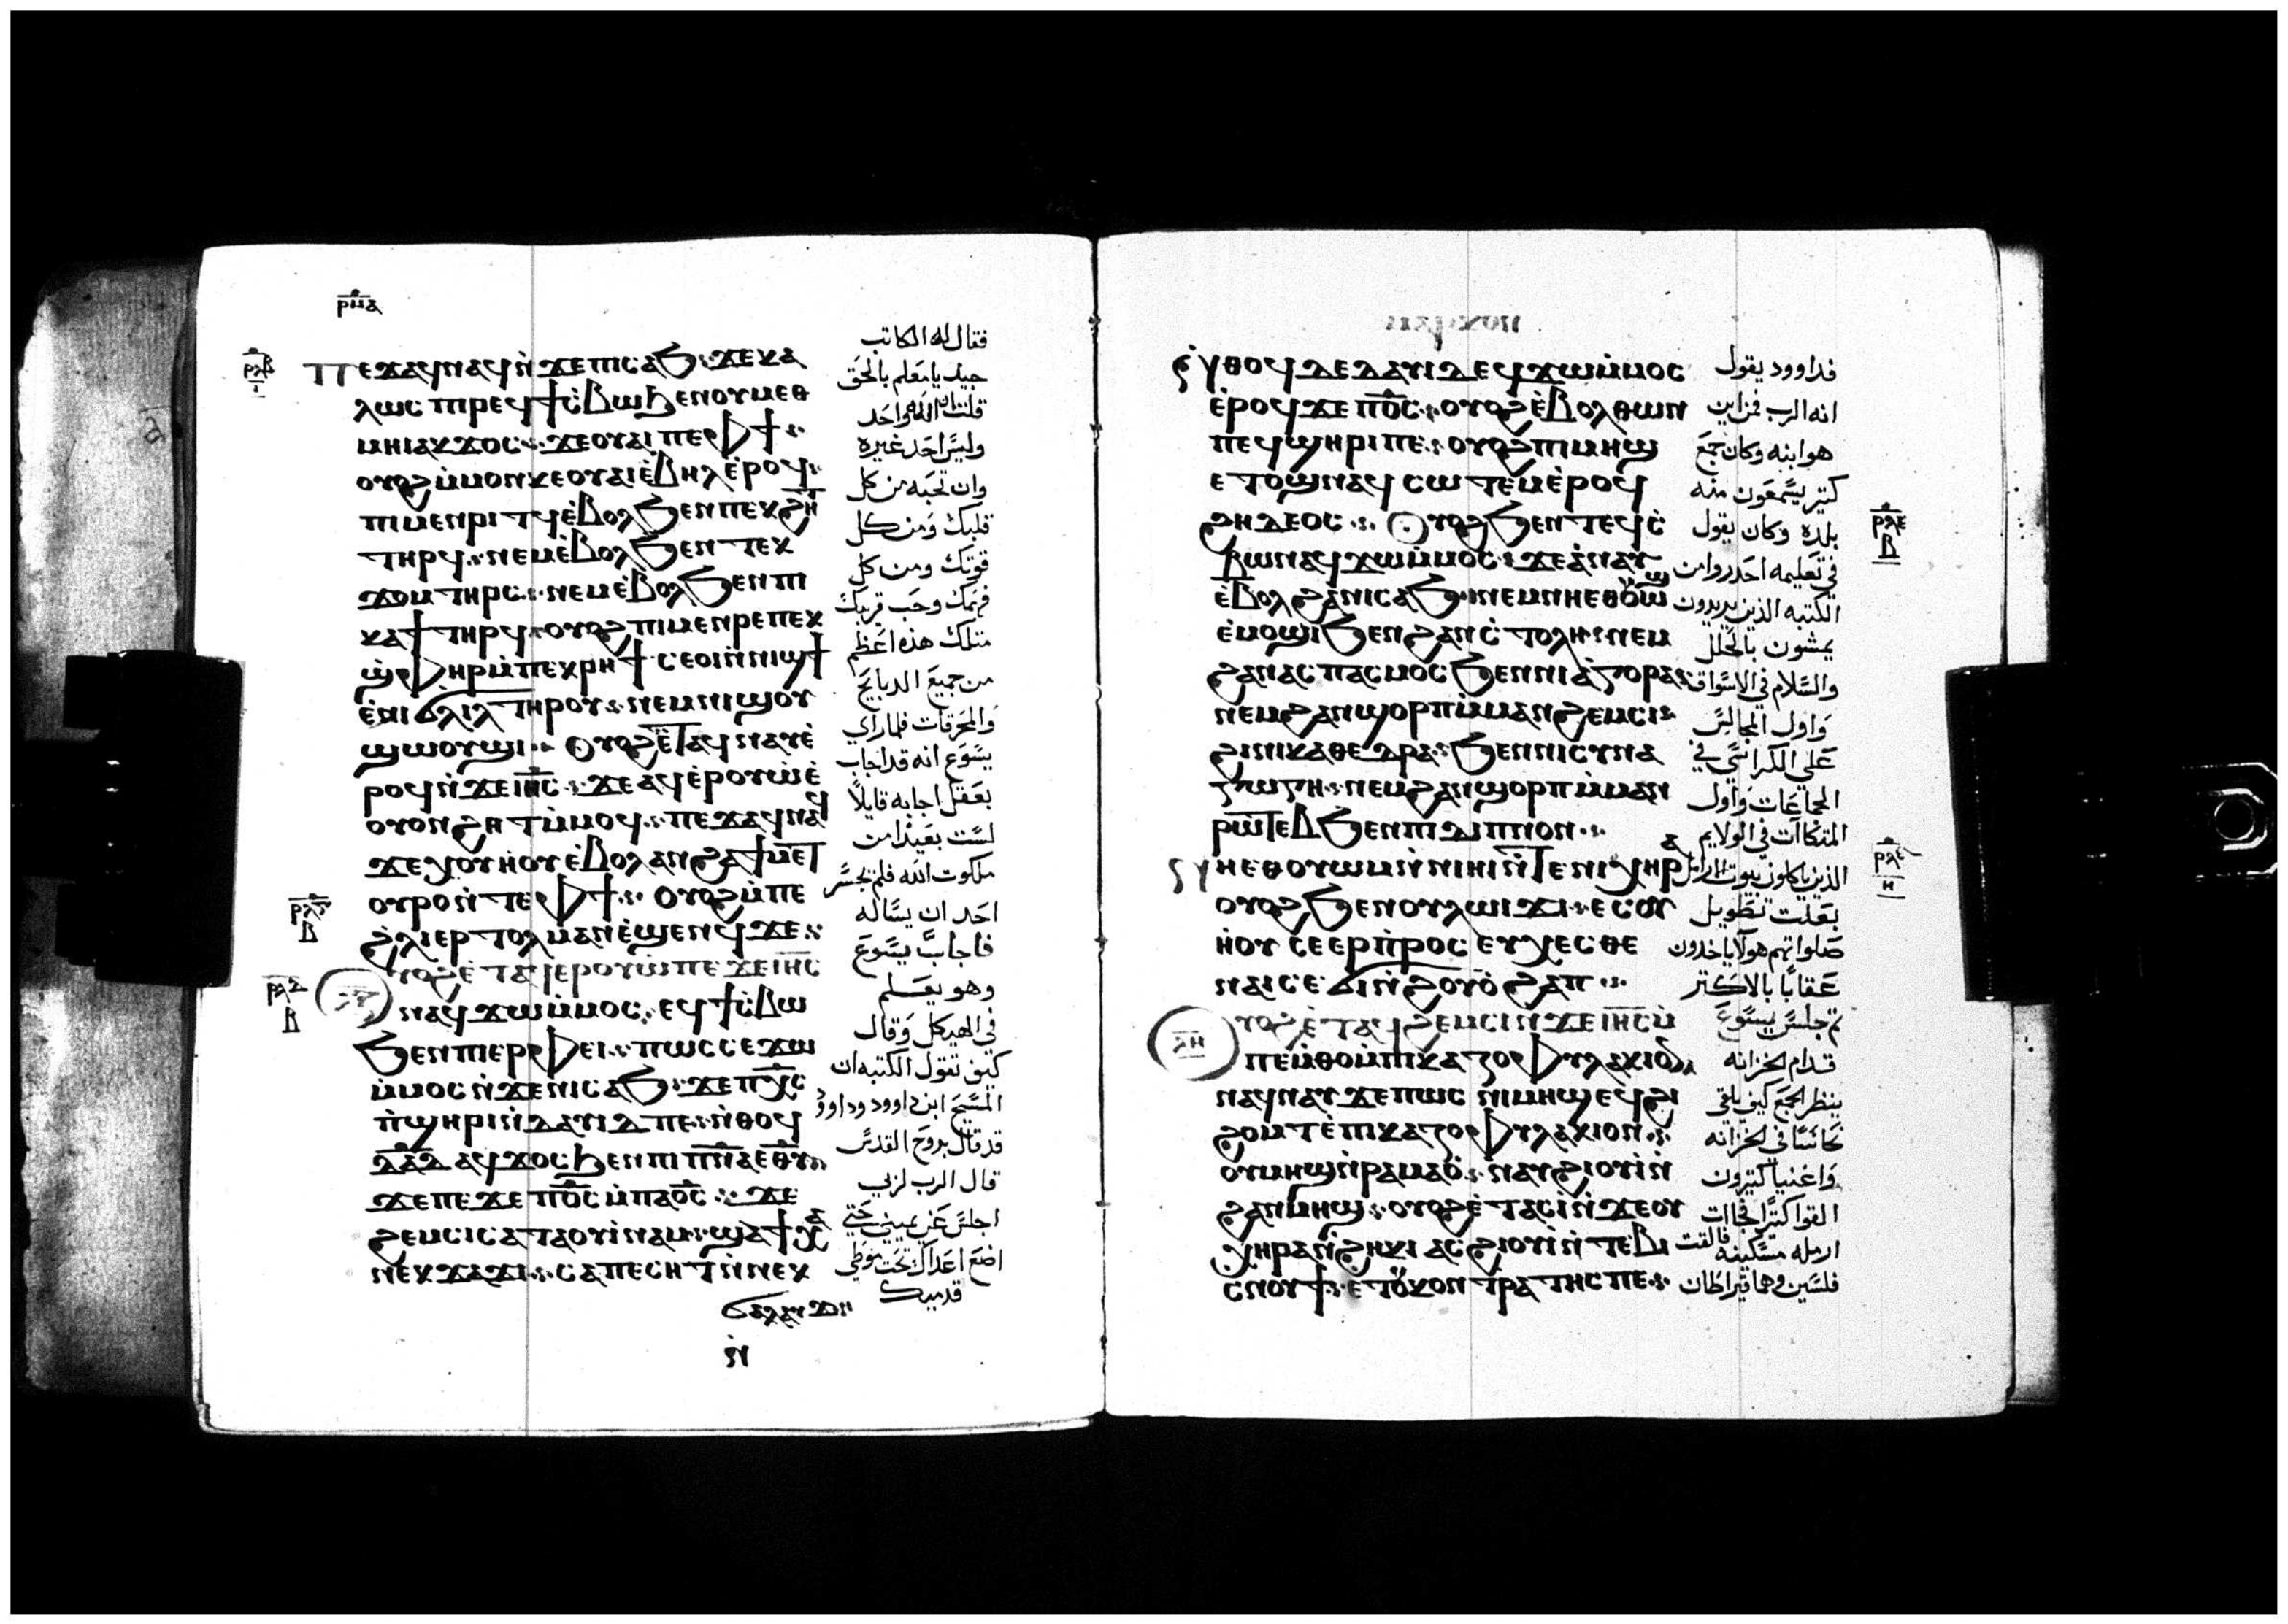 ⲣⲙⲁ
ⲡⲉϫⲁϥⲛⲁϥⲛ̀ϫⲉⲡⲓⲥⲁϧ : ϫⲉⲕⲁ
ⲗⲱⲥ ⲡⲓⲣⲉϥϯⲥ̀ⲃⲱ ϧⲉⲛⲟⲩⲙⲉⲑ
ⲙⲏⲓⲁⲕϫⲟⲥ : ϫⲉⲟⲩⲁⲓ ⲡⲉ ⲫϯ :
ⲟⲩⲟϩ ⲙ̀ⲙⲟⲛⲕⲉⲟⲩⲁⲓ ⲉ̀ⲃⲏⲗ ⲉ̀ⲣⲟϥ :
ⲡⲓⲙⲉⲛⲣⲓⲧϥ ⲉ̀ⲃⲟⲗ ϧⲉⲛ ⲡⲉⲕϩⲏⲧ
ⲧⲏⲣϥ : ⲛⲉⲙⲉ̀ⲃⲟⲗ ϧⲉⲛ ⲧⲉⲕ
ϫⲟⲙ ⲧⲏⲣⲥ : ⲛⲉⲙⲉ̀ⲃⲟⲗ ϧⲉⲛ ⲡⲓ
ⲕⲁϯ ⲧⲏⲣϥ : ⲟⲩⲟϩ ⲡⲓⲙⲉⲛⲣⲉ ⲡⲉⲕ
ϣ̀ⲫⲏⲣ ⲙ̀ⲡⲉⲕⲣⲏϯ ⲥⲉⲟⲓⲛ̀ⲛⲓϣϯ
ⲉ̀ⲛⲓϭⲗⲓⲗ ⲧⲏⲣⲟⲩ : ⲛⲉⲙⲛⲓϣⲟⲩ
ϣⲱⲟⲩϣⲓ : ⲟⲩⲟϩ ⲉ̀ⲧⲁϥⲛⲁⲩⲉ̀
ⲣⲟϥⲛ̀ϫⲉⲓⲏ̅ⲥ̅ : ϫⲉⲁϥⲉ̀ⲣⲟⲩⲱ̀ⲛ̀ⲉ̀
ⲟⲩⲟⲛ ϩⲏⲧ ⲙ̀ⲙⲟϥ : ⲡⲉϫⲁϥⲛⲁϥ
ϫⲉⲭⲟⲩⲏ̀ⲟⲩ ⲉ̀ⲃⲟⲗ ⲁⲛ ϩⲁ ϯⲙⲉⲧ
ⲟⲩⲣⲟⲛ̀ⲧⲉ ⲫϯ : ⲟⲩⲟϩ ⲙ̀ⲡⲉ
ϩ̀ⲗⲓ ⲉⲣⲧⲟⲗⲙⲁⲛ ⲉ̀ϣⲉⲛϥ ϫⲉ :
ⲩⲟϩ ⲉ̀ⲧⲁϥⲉⲣⲟⲩⲱ̀ ⲡⲉϫⲉⲓⲏ̅ⲥ̅
ⲛⲁϥϫⲱⲙ̀ⲙⲟⲥ : ⲉϥϯⲥ̀ⲃⲱ
ϧⲉⲛ ⲡⲓⲉⲣⲫⲉⲓ : ⲡⲱⲥ ⲥⲉϫⲱ
ⲙ̀ⲙⲟⲥ ⲛ̀ϫⲉⲛⲓⲥⲁϧ : ϫⲉ ⲡⲭ̅ⲥ̅
ⲡ̀ϣⲏⲣⲓⲛ̀ⲇⲁⲩⲓⲇ ⲡⲉ : ⲛ̀ⲑⲟϥ
ⲇⲁ̅ⲇ ⲁϥϫⲟⲥ ϧⲉⲛ ⲡⲓⲡ̅ⲛ̅ⲁ̅ⲉⲑⲩ
ϫⲉⲡⲉϫⲉ ⲡϭⲟ̅ⲥ ⲙ̀ⲡⲁϭⲟ̅ⲥ : ϫⲉ
ϩⲉⲙⲥⲓ ⲥⲁⲧⲁⲟⲩⲓ̀ⲛⲁⲙ : ϣⲁϯⲭⲁ
ⲛⲉⲕϫⲁϫⲓ : ⲥⲁⲡⲉⲥⲏⲧ ⲛ̀ⲛⲉⲕ
ϭⲁⲗⲁⲩϫ
ⲛ̀
فقال له الكاتب
جيد يا معلم بالحق
قلت ان الله واحد
وليس احد غيره
وان تحبه من كل
قلبك ومن كل
قوتك ومن كل
فهمك وحب قريبك
مثلك هذه اعظم
من جميع الدبايح
والمحرقات فلما راي
يسوع انه قد اجاب
بعقل اجابه قايلاً
لست بعيدا من
ملكوت الله فلم يجسر
احد ان يساله
فاجاب يسوع
وهو يعلم
في الهيكل وقال
كيف تقول الكتبه ان
المسيح ابن داوود وداوود
قد قال بروح القدس
قال الرب لربي
اجلس عن يميني حتي
اضع اعداك تحت موطي
قدميك
ⲣⲗⲃ
ⲓ
ⲣⲗⲅ
ⲃ
ⲣⲗⲇ
ⲃ
ⲛ̀ⲑⲟϥ ⲇⲉ ⲇⲁⲩⲓⲇ ⲉϥϫⲱⲙ̀ⲙⲟⲥ
ⲉ̀ⲣⲟϥ ϫⲉ ⲡϭⲟ̅ⲥ : ⲟⲩⲟϩ ⲉ̀ⲃⲟⲗ ⲑⲱⲛ
ⲡⲉϥϣⲏⲣⲓ ⲡⲉ : ⲟⲩⲟϩ ⲡⲓⲙⲏϣ
ⲉⲧⲟϣ ⲛⲁϥⲥⲱⲧⲉⲙ ⲉ̀ⲣⲟϥ
ϩⲏⲇⲉⲟⲥ : ⲟⲩⲟϩ ϧⲉⲛ ⲧⲉϥⲥ̀
ⲃⲱ ⲛⲁϥϫⲱⲙ̀ⲙⲟⲥ : ϫⲉ ⲁ̀ⲛⲁⲩ
ⲉ̀ⲃⲟⲗ ϩⲁ ⲛⲓⲥⲁϧ : ⲛⲉⲙ ⲛⲏⲉⲑⲟⲩⲱϣ
ⲉ̀ⲙⲟϣⲓ ϧⲉⲛ ϩⲁⲛⲥ̀ⲧⲟⲗⲏ : ⲛⲉⲙ
ϩⲁⲛⲁⲥⲡⲁⲥⲙⲟⲥ ϧⲉⲛ ⲛⲓⲁ̀ⲅⲟⲣⲁ :
ⲛⲉⲙ ϩⲁⲛϣⲟⲣⲡ ⲙ̀ⲙⲁⲛϩⲉⲙⲥⲓ :
ϩⲓ ⲛⲓⲕⲁⲑⲉⲇⲣⲁ : ϧⲉⲛ ⲛⲓⲥⲩⲛⲁ
ⲅⲱⲅⲏ : ⲛⲉⲙ ϩⲁⲛϣⲟⲣⲡ ⲙ̀ⲙⲁⲛ
ⲣⲱⲧⲉⲃ ϧⲉⲛ ⲡⲓⲇⲓⲡⲛⲟⲛ :
ⲛⲏⲉⲑⲟⲩⲱⲙ ⲛ̀ⲛⲓⲏⲓ ⲛ̀ⲧⲉ ⲛⲓⲭⲏⲣⲁ
ⲟⲩⲟϩ ϧⲉⲛ ⲟⲩⲗⲱⲓϫⲓ : ⲉⲥⲟⲩ
ⲏ̀ⲟⲩ ⲥⲉⲉⲣⲡ̀ⲣⲟⲥⲉⲩⲭⲉⲥⲑⲉ
ⲛⲁⲓ ⲥⲉϭⲓ ⲛ̀ϩⲟⲩⲟ̀ ϩⲁⲡ :
ⲩⲟϩ ⲉ̀ⲧⲁϥϩⲉⲙⲥⲓ ⲛ̀ϫⲉⲓⲏ̅ⲥ̅ ⲙ̀
ⲡⲉⲙ̀ⲑⲟ ⲙ̀ⲡⲓⲕⲁⲍⲟⲫⲩⲗⲁⲕⲓⲟⲛ
ⲛⲁϥⲛⲁⲩ ϫⲉ ⲡⲱⲥ ⲛⲓⲙⲏϣ ⲉϥϩⲓ
ϩⲟⲙⲧ ⲉ̀ⲡⲓⲕⲁⲍⲟⲫⲩⲗⲁⲕⲓⲟⲛ :
ⲟⲩⲙⲏϣ ⲛ̀ⲣⲁⲙⲁⲟ̀ : ⲛⲁⲩϩⲓⲟⲩⲓ̀ ⲛ̀
ϩⲁⲛⲙⲏϣ : ⲟⲩⲟϩ ⲉ̀ⲧⲁⲥⲓ̀ ⲛ̀ϫⲉⲟⲩ
ⲭⲏⲣⲁ ⲛ̀ϩⲏⲕⲓ ⲁⲥϩⲓⲟⲩⲓ̀ ⲛ̀ⲧⲉⲃⲓ
ⲥⲛⲟⲩϯ : ⲉ̀ⲧⲟⲩ ⲕⲟⲛⲧⲣⲁⲧⲏⲥ ⲡⲉ :
ⲛⲏ
فداوود يقول
انه الرب فمن اين
هو ابنه وكان جمع
كتير يسمعون منه
بلده وكان يقول
في تعليمه احدروا من
الكتبه الذين يريدون
يمشون بالحلل
والسلام في الاسواق
واول المجالس
علي الكراسي في
الجماعات واول
المتكاات في الولايم
الذين ياكلون بيوت الارامل
بعلت تطويل
صلواتهم هولا ياخدون
عقابا بالاكتر
تم جلس يسوع
قدام الخزانه
ينظر الجمع كيف يلقي
نحاسا في الخزانه
واغنيا كتيرون
القوا كتيرا فجاات
ارمله مسكينه فالقت
فلسين وهما قيراطان
ⲣⲗⲉ
ⲃ
ⲏ